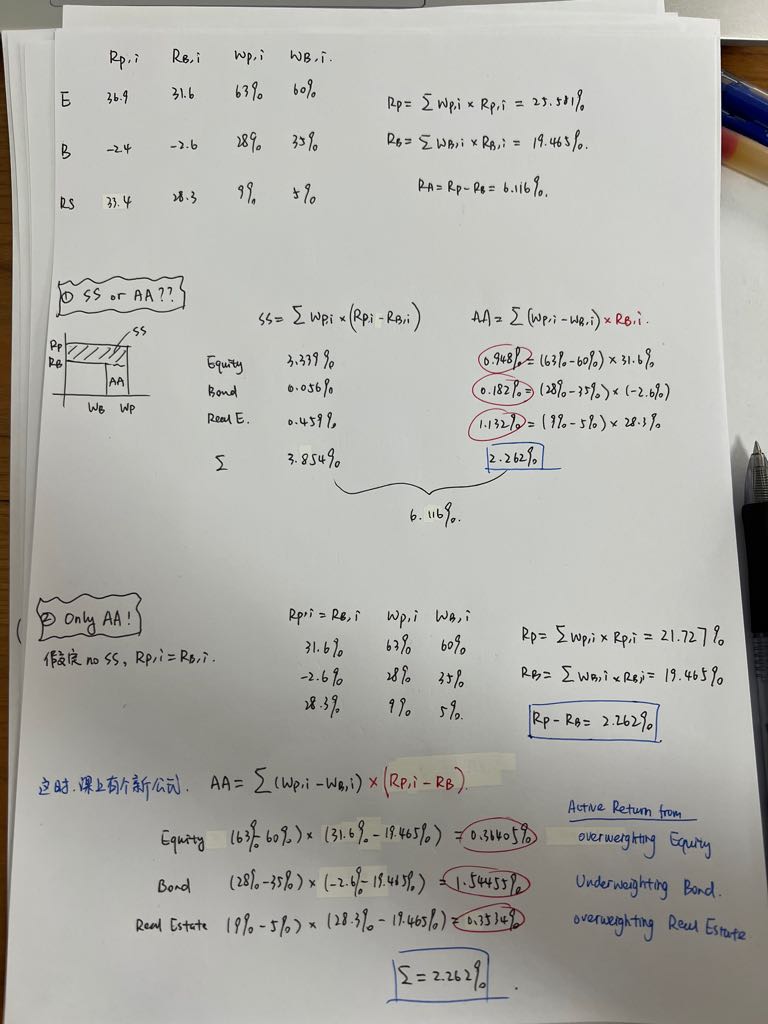 Rp,i RB,i Wp,i WB,i.
E 36.9 31.6 63% 60%
Rp = ∑ Wp,i × Rp,i = 25.581%
B -2.4 -2.6 28% 35%
RB = ∑ WB,i × RB,i = 19.465%.
RS 33.4 28.3 9% 5%
RA = Rp - RB = 6.116%.
① SS or AA??
SS = ∑ Wp,i × (Rp,i - RB,i) AA = ∑ (Wp,i - WB,i) × RB,i.
SS
Rp
RB
AA
WB Wp
Equity 3.339% 0.948% = (63% - 60%) × 31.6%
Bond 0.056% 0.182% = (28% - 35%) × (-2.6%)
Real E. 0.459% 1.132% = (9% - 5%) × 28.3%
∑ 3.854% 2.262%
6.116%.
② Only AA!
假定 no SS, Rp,i = RB,i.
Rp,i = RB,i Wp,i WB,i
31.6% 63% 60%
-2.6% 28% 35%
28.3% 9% 5%.
Rp = ∑ Wp,i × Rp,i = 21.727%
RB = ∑ WB,i × RB,i = 19.465%
Rp - RB = 2.262%
这时.课上有个新公式. AA = ∑ (Wp,i - WB,i) × (Rp,i - RB).
Active Return from
Equity (63% - 60%) × (31.6% - 19.465%) = 0.36405% overweighting Equity
Bond (28% - 35%) × (-2.6% - 19.465%) = 1.54455% Underweighting Bond.
Real Estate (9% - 5%) × (28.3% - 19.465%) = 0.3534% overweighting Real Estate.
∑ = 2.262%.